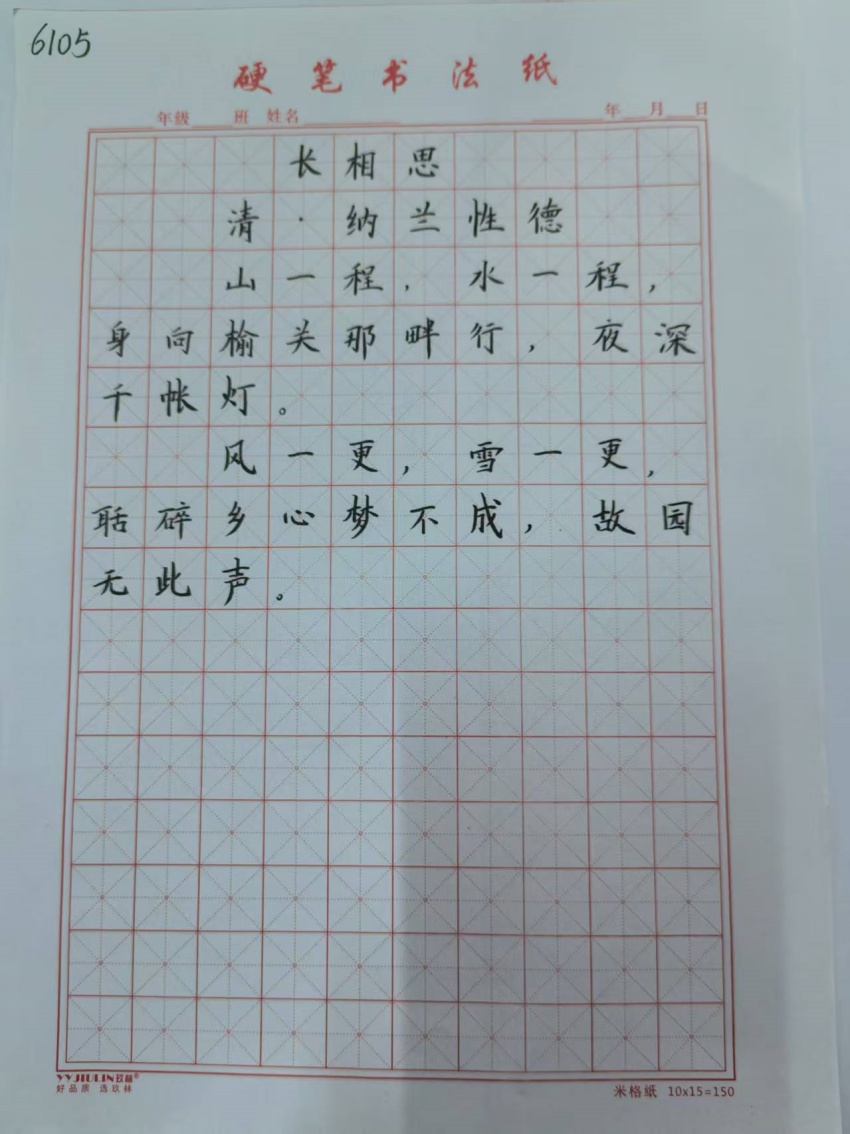 6105
硬笔书法纸
年级 班 姓名 年 月 日
长相思
清·纳兰性德
山一程，水一程，
身向榆关那畔行，夜深
千帐灯。
风一更，雪一更，
聒碎乡心梦不成，故园
无此声。
YYJIULIN玖林®
好品质 选玖林
米格纸 10x15=150